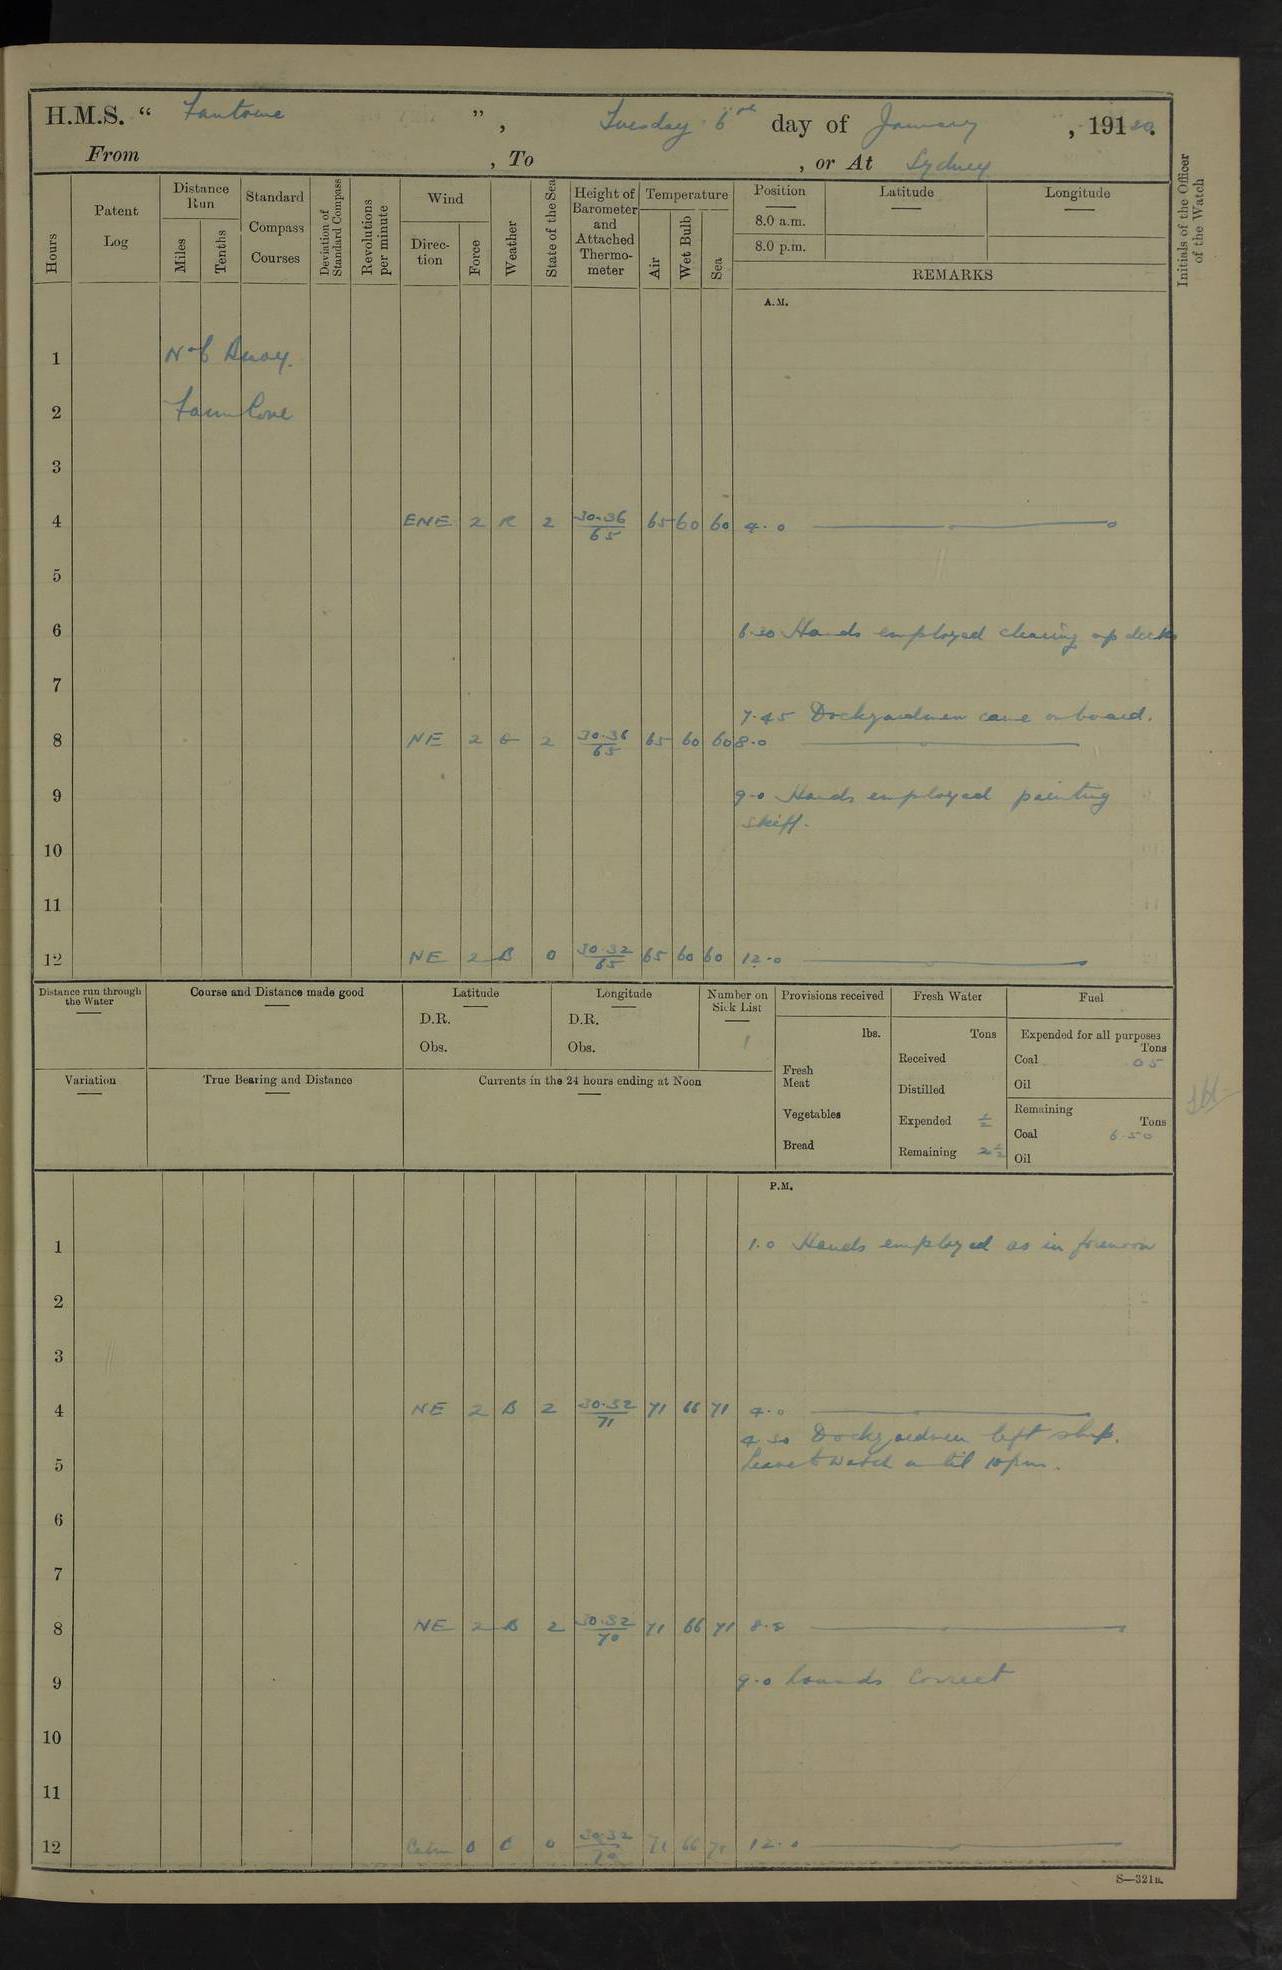 H.M.S. “ Fantome ”, Tuesday 6th day of January, 1920.
From , To , or At Sydney
Hours
Patent Log
Distance Run
Miles
Tenths
Standard Compass Courses
Deviation of Standard Compass
Revolutions per minute
Wind
Direc-tion
Force
Weather
State of the Sea
Height of Barometer and Attached Thermo-meter
Temperature
Air
Wet Bulb
Sea
Position
8.0 a.m.
8.0 p.m.
Latitude
Longitude
REMARKS
Initials of the Officer of the Watch
A.M.
1 No 6 Buoy.
2 Farm Cove
3
4 ENE 2 R 2 30.36/65 65 60 60 4.0
5
6 6.30 Hands employed clearing up decks
7
7.45 Dockyardmen came onboard.
8 NE 2 G 2 30.36/65 65 60 60 8.0
9 9.0 Hands employed painting
skiff.
10
11
12 NE 2 B 0 30.32/65 65 60 60 12.0
Distance run through the Water
Course and Distance made good
Latitude
D.R.
Obs.
Longitude
D.R.
Obs.
Number on Sick List
1
Provisions received
lbs.
Fresh Meat
Vegetables
Bread
Fresh Water
Tons
Received
Distilled
Expended ½
Remaining 2½
Fuel
Expended for all purposes
Tons
Coal 05
Oil
Remaining
Tons
Coal 6.50
Oil
Variation
True Bearing and Distance
Currents in the 24 hours ending at Noon
P.M.
1 1.0 Hands employed as in forenoon
2
3
4 NE 2 B 2 30.32/71 71 66 71 4.0
4.30 Dockyardmen left ship.
5 Leave to watch until 10pm.
6
7
8 NE 2 B 2 30.32/70 71 66 71 8.0
9 9.0 Rounds Correct
10
11
12 Calm 0 C 0 30.32/70 71 66 71 12.0
S—321B.